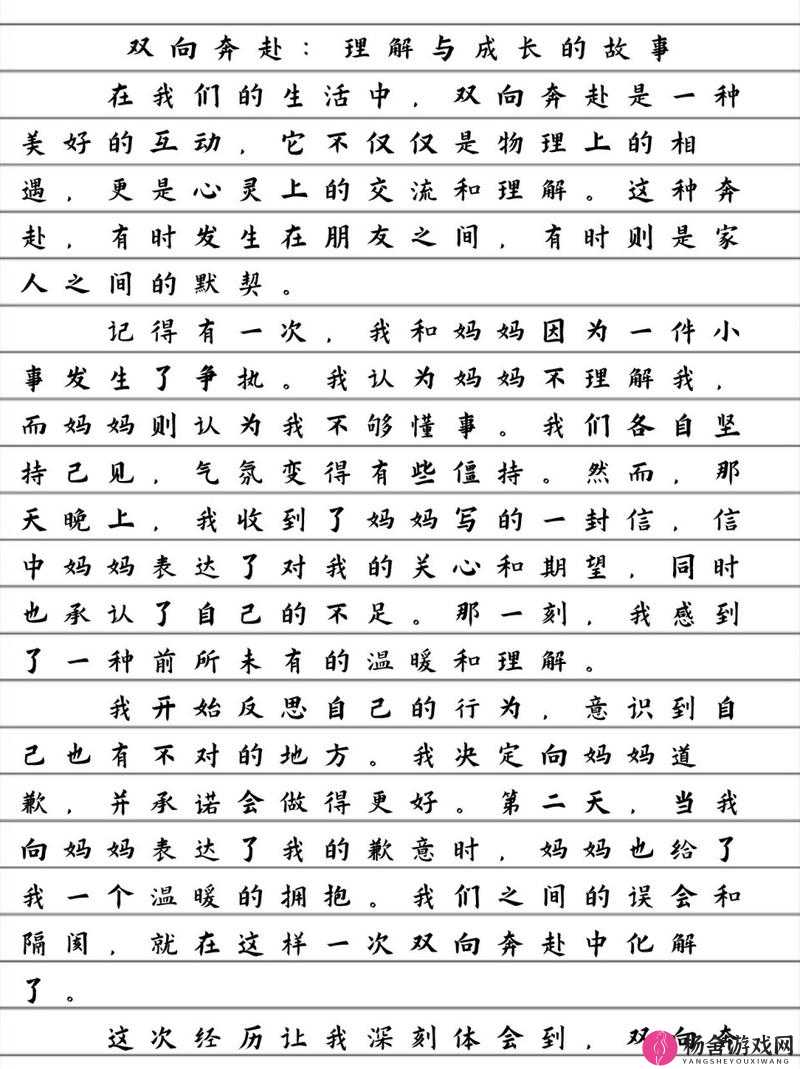 双向奔赴：理解与成长的故事
在我们的生活中，双向奔赴是一种
美好的互动，它不仅仅是物理上的相
遇，更是心灵上的交流和理解。这种奔
赴，有时发生在朋友之间，有时则是家
人之间的默契。
记得有一次，我和妈妈因为一件小
事发生了争执。我认为妈妈不理解我，
而妈妈则认为我不够懂事。我们各自坚
持己见，气氛变得有些僵持。然而，那
天晚上，我收到了妈妈写的一封信，信
中妈妈表达了对我的关心和期望，同时
也承认了自己的不足。那一刻，我感到
了一种前所未有的温暖和理解。
我开始反思自己的行为，意识到自
己也有不对的地方。我决定向妈妈道
歉，并承诺会做得更好。第二天，当我
向妈妈表达了我的歉意时，妈妈也给了
我一个温暖的拥抱。我们之间的误会和
隔阂，就在这样一次双向奔赴中化解
了。
这次经历让我深刻体会到，双向奔
杨舍游戏网
YANGSHEYOUXIWANG